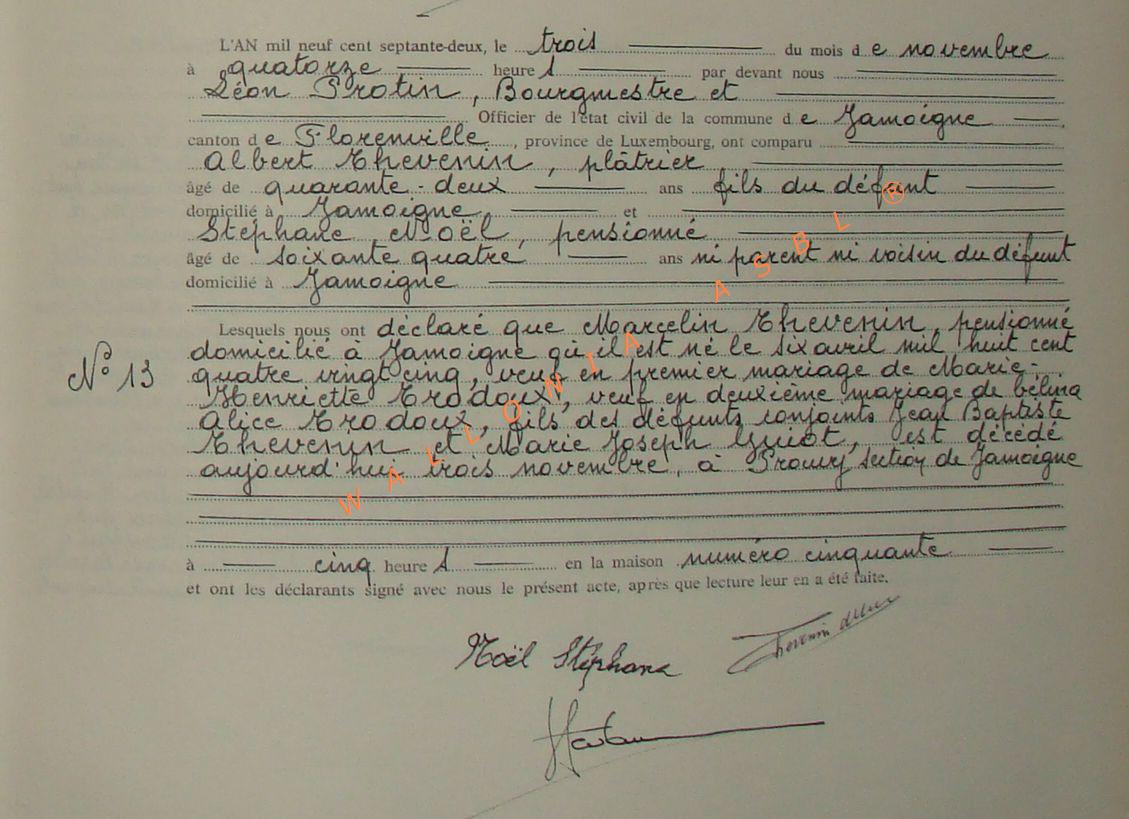 L'AN mil neuf cent septante-deux, le trois du mois d e novembre
à quatorze heure s par devant nous
Léon Protin, Bourgmestre et
Officier de l'état civil de la commune d e Jamoigne
canton d e Florenville, province de Luxembourg, ont comparu
Albert Thevenin, plâtrier
âgé de quarante-deux ans fils du défunt
domicilié à Jamoigne et
Stéphane Noël, pensionné
âgé de soixante quatre ans ni parent ni voisin du défunt
domicilié à Jamoigne
Lesquels nous ont déclaré que Marcelin Thevenin, pensionné
N° 13
domicilié à Jamoigne qu'il est né le six avril mil huit cent
quatre vingt cinq, veuf en premier mariage de Marie-
Henriette Trodoux, veuf en deuxième mariage de Célina
Alice Trodoux, fils des défunts conjoints Jean Baptiste
Thevenin et Marie Joseph Guiot, est décédé
aujourd'hui trois novembre, à Prouvy section de Jamoigne
à cinq heure s en la maison numéro cinquante
et ont les déclarants signé avec nous le présent acte, après que lecture leur en a été faite.
Noël Stéphane Thevenin
WALLONIA ASBL ®